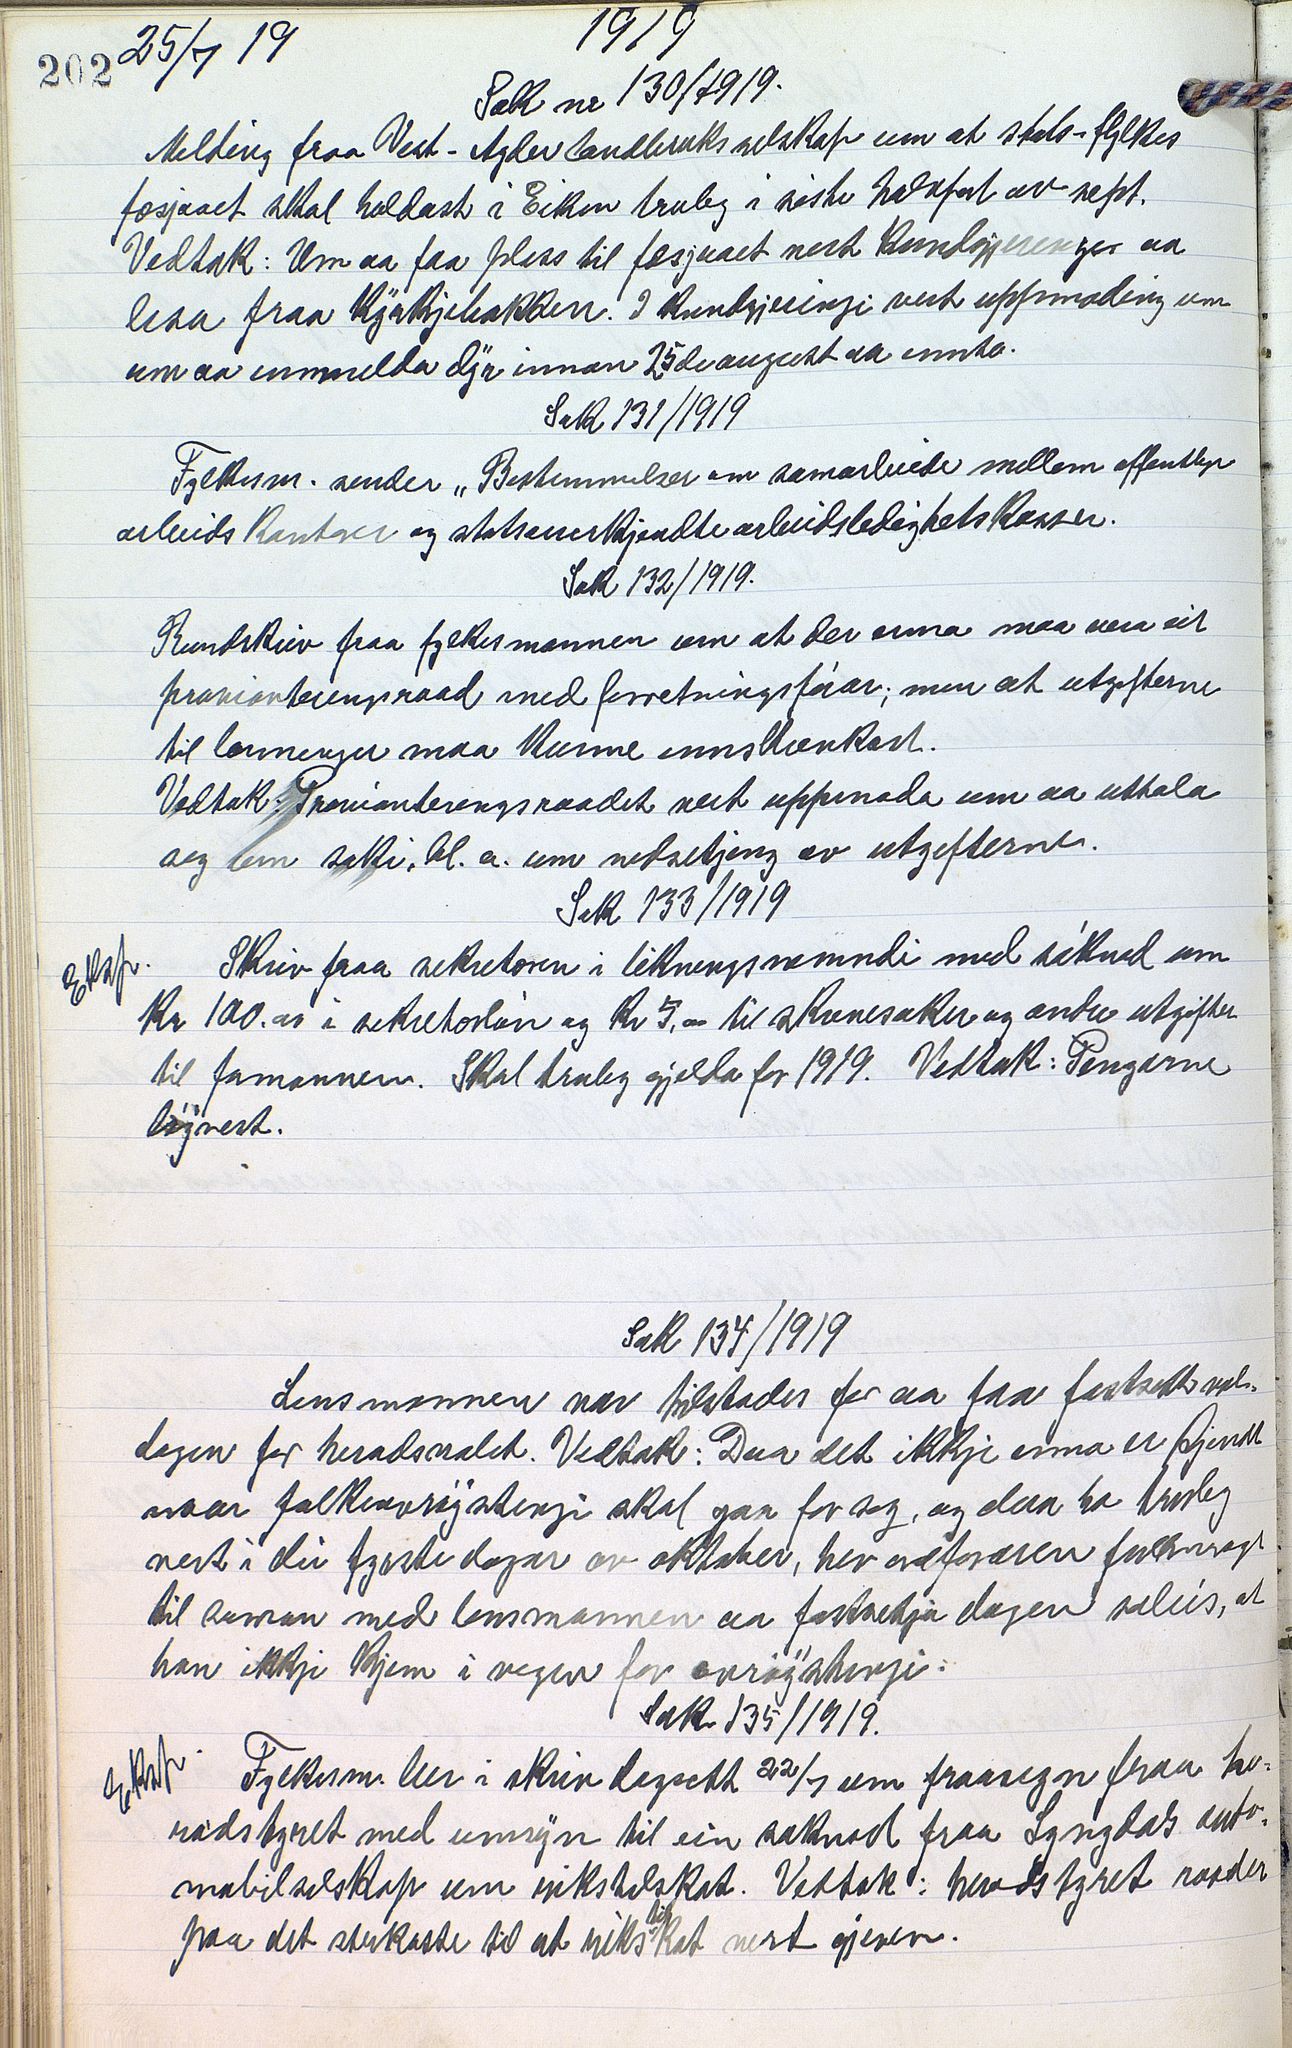 202 25/7 19 1919
Sak nr 130/1919.
Melding fraa Vest-Agder landbruksselskap um at stats-fylkes
fesjaaet skal haldast i Eiken truleg i siste halvpart av sept.
Vedtak: Um aa faa plass til fesjaaet vert kundgjeringer aa
lesa fraa Kyrkjebakken. I kundgjeringi vert uppmoding um
um aa innmelda dyr innan 25de august aa innta.
Sak 131/1919
Fylkesm. sender "Bestemmelser om samarbeide mellem offentlige
arbeidskontorer og statsanerkjendte arbeidsledighetskasser.
Sak 132/1919.
Rundskriv fraa fylkesmannen um at der enna maa vera eit
provianteringsraad med forretningsførar; men at utgifterne
til lønninger maa kunne innskrenkast.
Vedtak: Provianteringsraadet vert uppmoda um aa uttala
seg um saki, bl. a. um nedsetjing av utgifterne.
Sak 133/1919
Eksp. Skriv fraa sekretæren i likningsnemndi med søknad um
Kr 100.00 i sekretærløn og Kr 7,00 til skrivesaker og andre utgifter
til formannen. Skal truleg gjelda for 1919. Vedtak: Pengarne
løyvest.
Sak 134/1919
Lensmannen var tilstades for aa faa fastsett val-
dagen for heradsvalet. Vedtak: Daa det ikkje enna er kjendt
naar folkeavrøystingi skal gaa for seg, og den ha truleg
vert i dei fyrste dagar av oktober, hev ordføraren fullmagt
til saman med lensmannen aa fastsetja dagen soleis, at
han ikkje kjem i vegen for avrøystingi.
Sak 135/1919.
Eksp. Fylkesm. ber i skriv dagsett 22/7 um fraasegn fraa he-
radstyret med umsyn til ein søknad fraa Lyngdals auto-
mobilselskap um rikstilskot. Vedtak: heradstyret raader
paa det sterkaste til at rikstilskot vert gjeven.